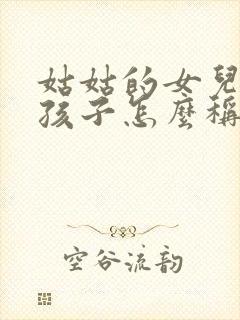 姑姑的女兒
孩子怎麼稱
空谷流韵